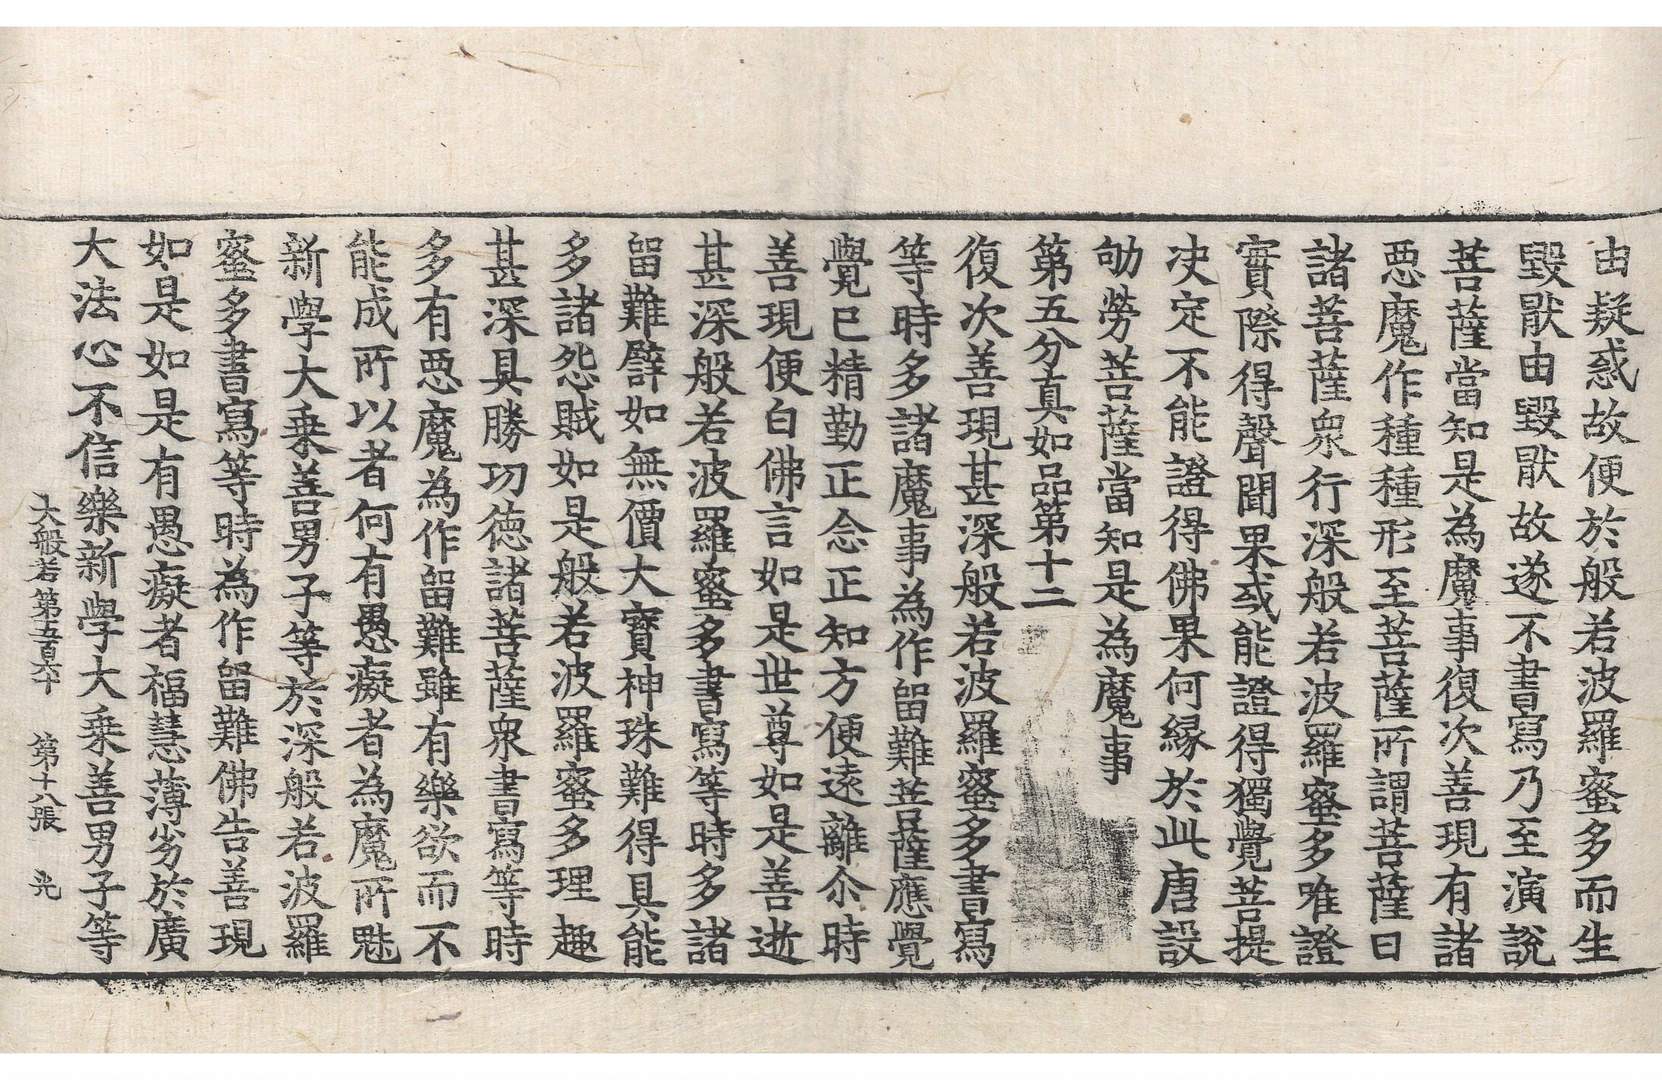 由疑惑故便於般若波羅蜜多而生
毀猒由毀猒故遂不書寫乃至演說
菩薩當知是為魔事復次善現有諸
惡魔作種種形至菩薩所謂菩薩曰
諸菩薩衆行深般若波羅蜜多唯證
實際得聲聞果或能證得獨覺菩提
決定不能證得佛果何緣於此唐設
劬勞菩薩當知是為魔事
第五分真如品第十二
復次善現甚深般若波羅蜜多書寫
等時多諸魔事為作留難菩薩應覺
覺已精勤正念正知方便遠離尒時
善現便白佛言如是世尊如是善逝
甚深般若波羅蜜多書寫等時多諸
留難譬如無價大寶神珠難得具能
多諸怨賊如是般若波羅蜜多理趣
甚深具勝功德諸菩薩衆書寫等時
多有惡魔為作留難雖有樂欲而不
能成所以者何有愚癡者為魔所魅
新學大乗善男子等於深般若波羅
蜜多書寫等時為作留難佛告善現
如是如是有愚癡者福慧薄劣於廣
大法心不信樂新學大乗善男子等
大般若第五百六十 第十八張 光